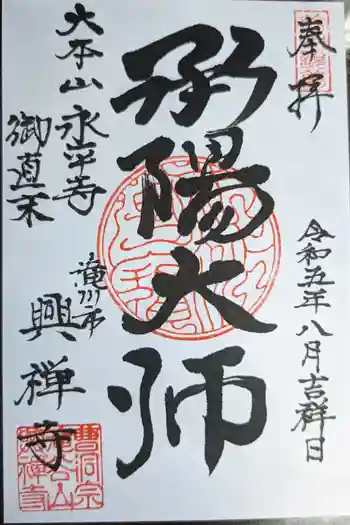 奉拝
令和五年八月吉祥日
承陽大師
大本山永平寺
御直末
滝川市
興禅寺
曹洞宗